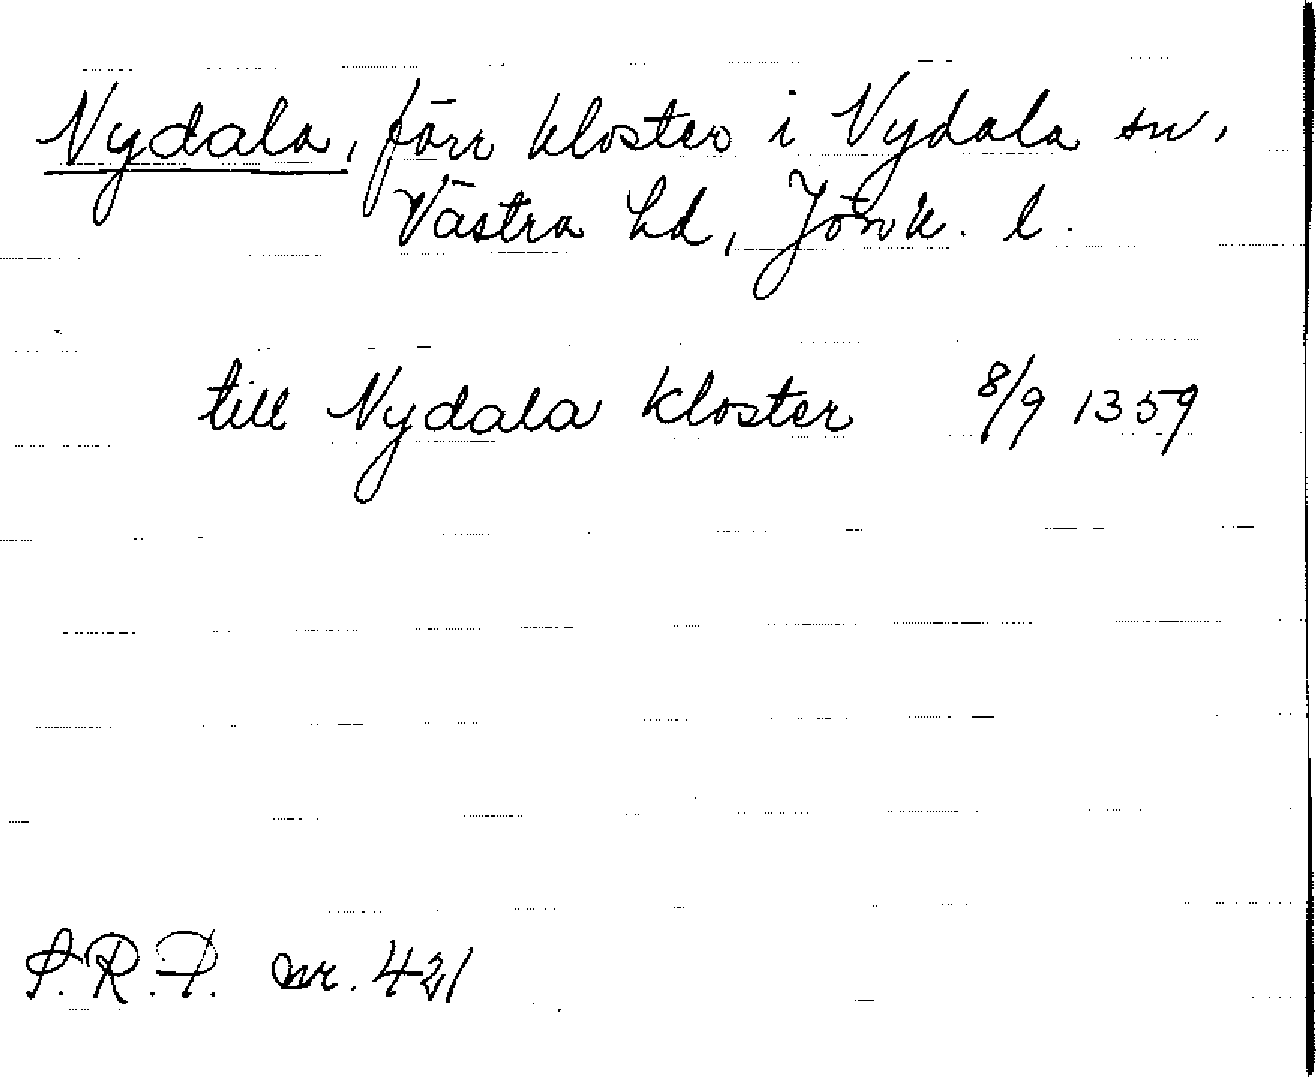 Nydala, förr kloster i Nydala sn,
Västra hd, Jönk. l.
till Nydala kloster 8/9 1359
S.R.P. nr. 421